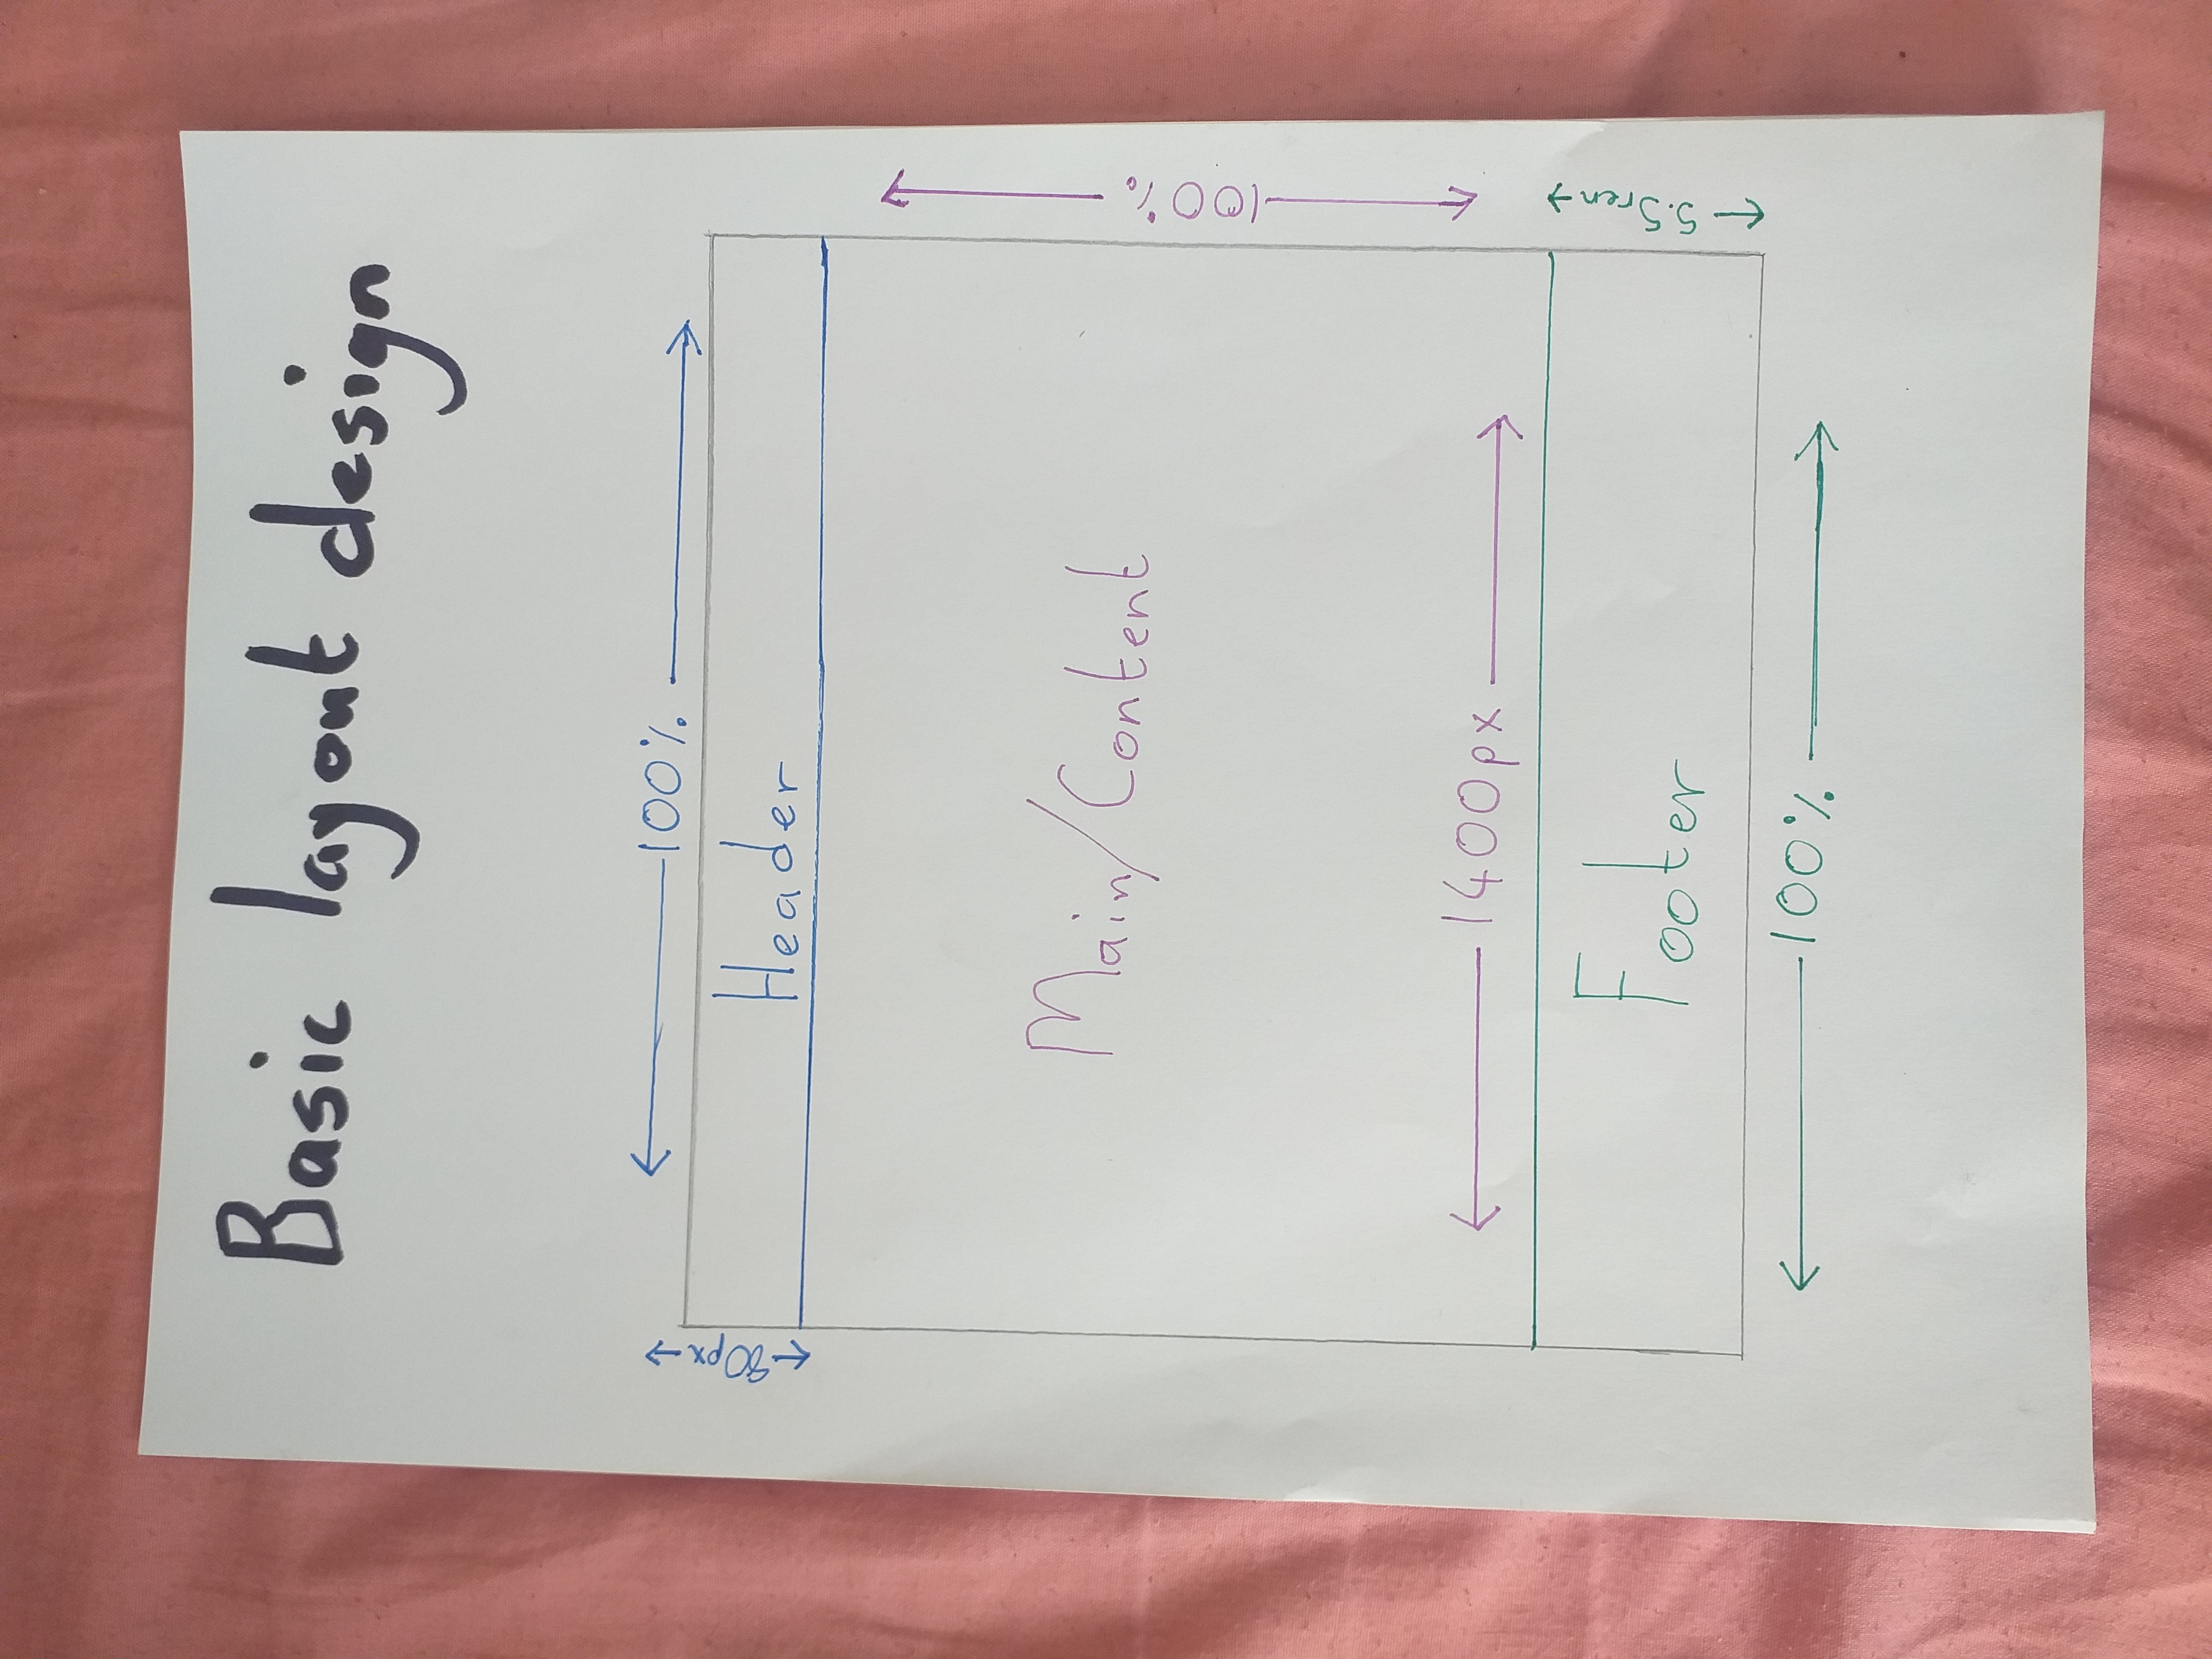 Basic layout design
100%
80px
Header
Main/Content
100%
1400px
Footer
5.5rem
100%